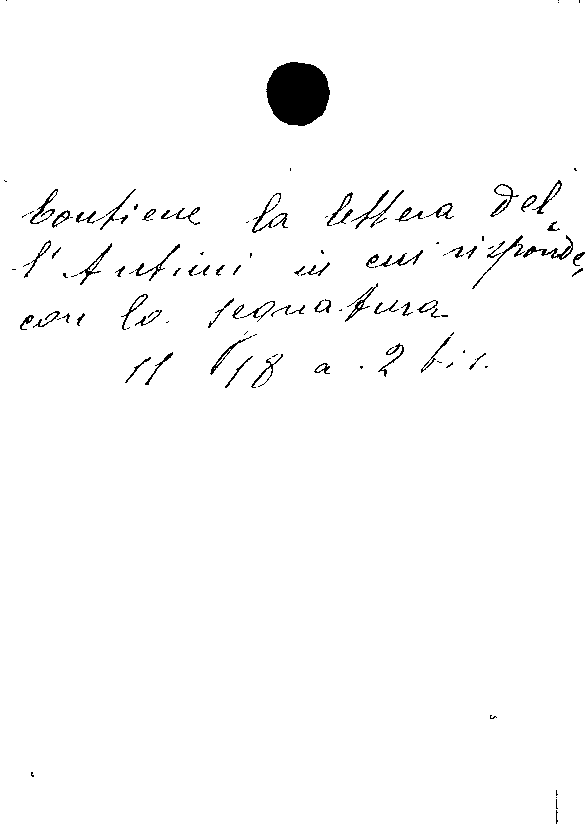 Contiene la lettera del-
l'Antimi in cui risponde,
con la segnatura
11 18 a. 2 bis.